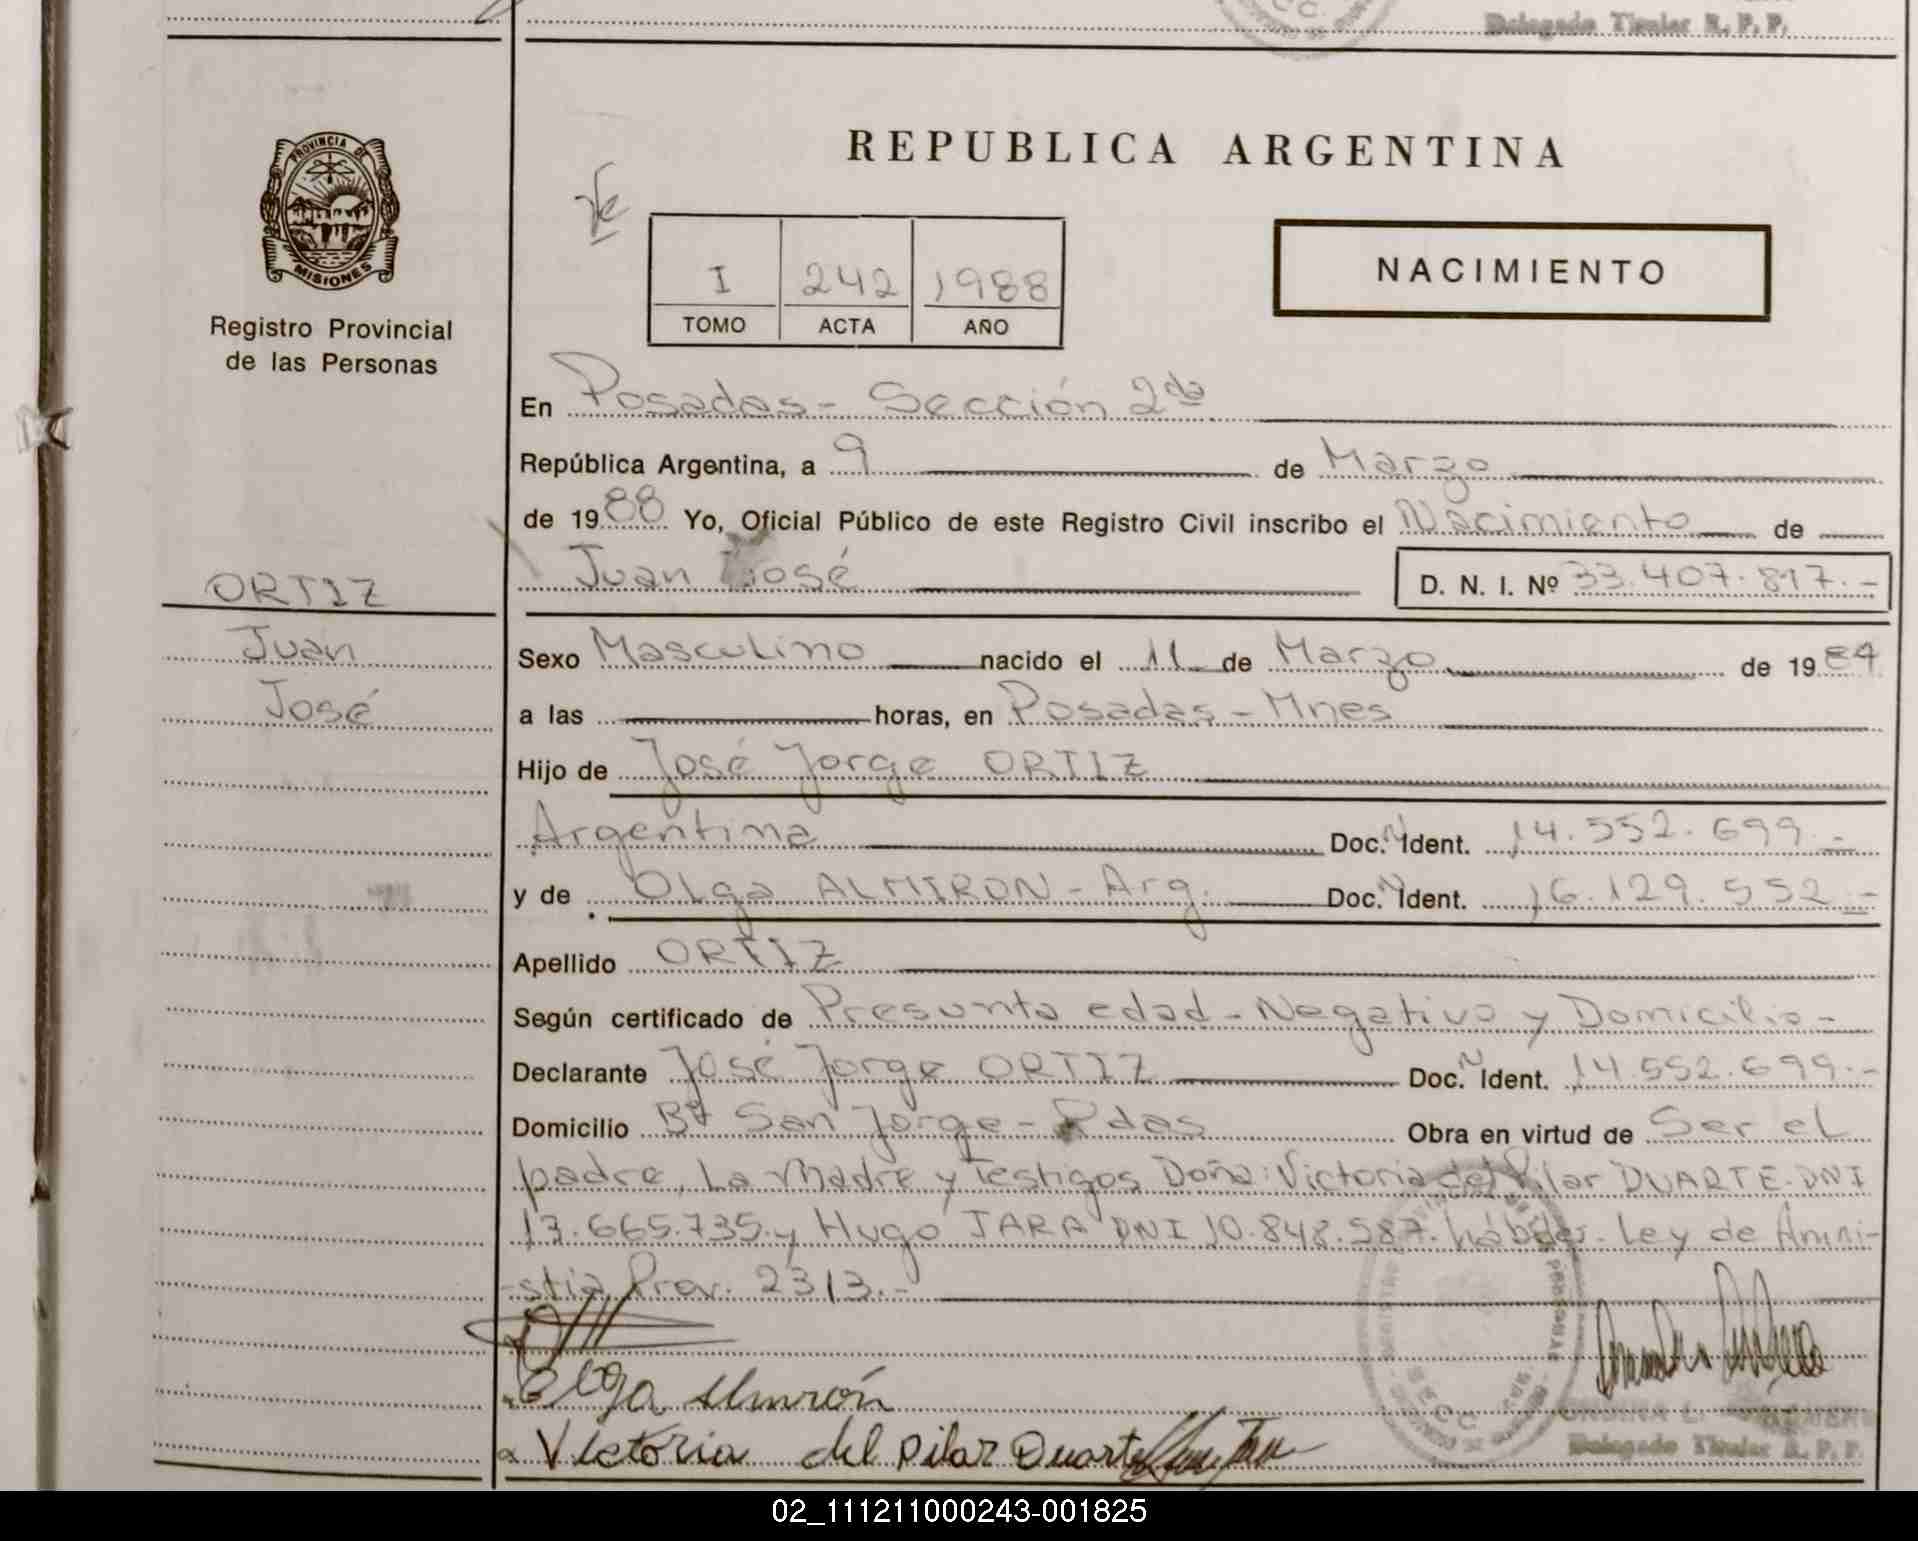 Delegado Titular R. P. P.
PROVINCIA DE
MISIONES
Registro Provincial
de las Personas
REPUBLICA ARGENTINA
I 242 1988
TOMO ACTA AÑO
NACIMIENTO
En Posadas - Sección 2da
República Argentina, a 9 de Marzo
de 1988 Yo, Oficial Público de este Registro Civil inscribo el Nacimiento de
Juan José D. N. I. Nº 33.407.817.-
ORTIZ
Juan
José
Sexo Masculino nacido el 11 de Marzo de 1984
a las horas, en Posadas - Mnes
Hijo de José Jorge ORTIZ
Argentina Doc. N Ident. 14.552.699.-
y de Olga ALMIRON - Arg. Doc. N Ident. 16.129.552.-
Apellido ORTIZ
Según certificado de Presunta edad - Negativo y Domicilio -
Declarante José Jorge ORTIZ Doc. N Ident. 14.552.699.-
Domicilio Bº San Jorge - Pdas Obra en virtud de Ser el
padre, La Madre y Testigos Doña: Victoria del Pilar DUARTE. DNI
17.665.735. y Hugo JARA DNI 10.848.587. hábiles. Ley de Amni-
-stia Prov. 2313.-
Olga Almirón
Victoria del Pilar Duarte
Delegado Titular R. P. P.
02_111211000243-001825